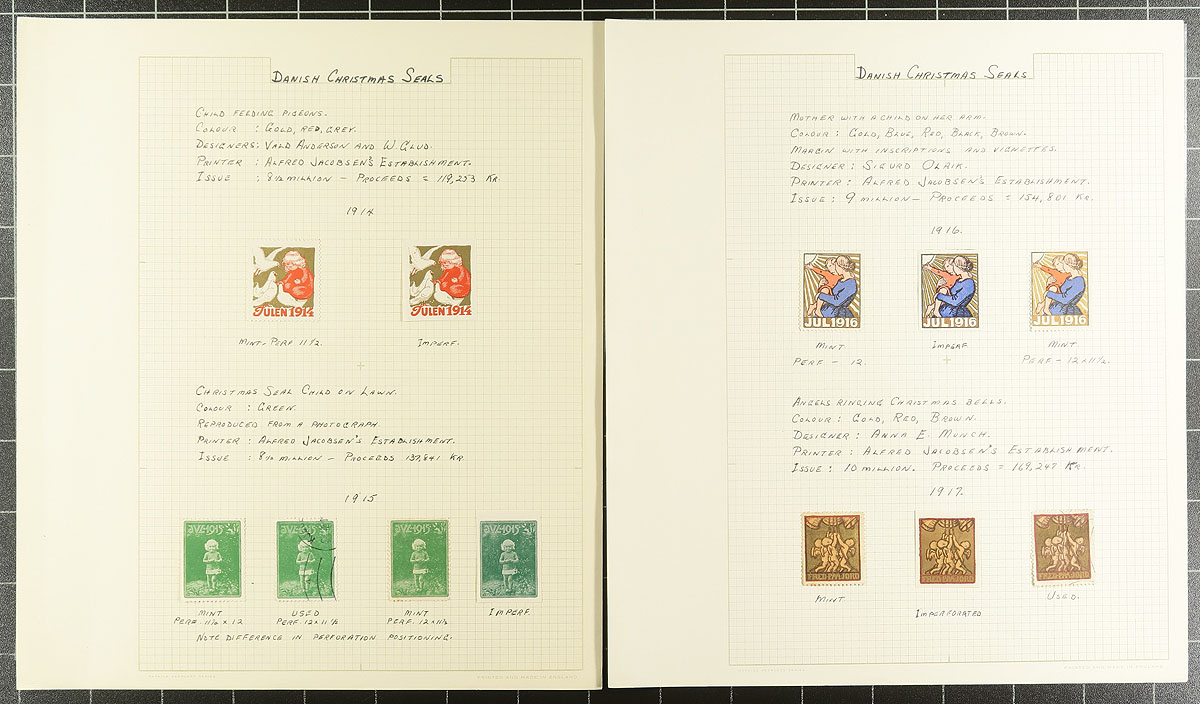 DANISH CHRISTMAS SEALS
CHILD FEEDING PIGEONS.
COLOUR : GOLD, RED, GREY.
DESIGNERS: VALD ANDERSON AND W. GLUD.
PRINTER : ALFRED JACOBSEN'S ESTABLISHMENT.
ISSUE : 8 1/2 MILLION – PROCEEDS = 119,253 KR.
1914
JULEN 1914
JULEN 1914
MINT - PERF 11 1/2.
IMPERF.
CHRISTMAS SEAL CHILD ON LAWN.
COLOUR : GREEN.
REPRODUCED FROM A PHOTOGRAPH.
PRINTER : ALFRED JACOBSEN'S ESTABLISHMENT.
ISSUE : 8 1/2 MILLION – PROCEEDS 137,841 KR.
1915
MINT
PERF. 11 1/2 x 12
USED
PERF. 12 x 11 1/2
MINT
PERF. 12 x 11 1/2
IMPERF.
NOTE DIFFERENCE IN PERFORATION POSITIONING.
PRINTED AND MADE IN ENGLAND
DANISH CHRISTMAS SEALS
MOTHER WITH A CHILD ON HER ARM.
COLOUR : GOLD, BLUE, RED, BLACK, BROWN.
MARGIN WITH INSCRIPTIONS AND VIGNETTES.
DESIGNER : SIGURD OLRIK.
PRINTER : ALFRED JACOBSEN'S ESTABLISHMENT.
ISSUE : 9 MILLION – PROCEEDS = 154,801 KR.
1916.
JUL 1916
JUL 1916
JUL 1916
MINT
PERF - 12.
IMPERF
MINT
PERF - 12 x 11 1/2.
ANGELS RINGING CHRISTMAS BELLS.
COLOUR : GOLD, RED, BROWN.
DESIGNER : ANNA E. MUNCH.
PRINTER : ALFRED JACOBSEN'S ESTABLISHMENT.
ISSUE : 10 MILLION. PROCEEDS = 169,247 KR.
1917.
FRED·PAA·JORD
FRED·PAA·JORD
FRED·PAA·JORD
MINT
IMPERFORATED
USED.
PRINTED AND MADE IN ENGLAND